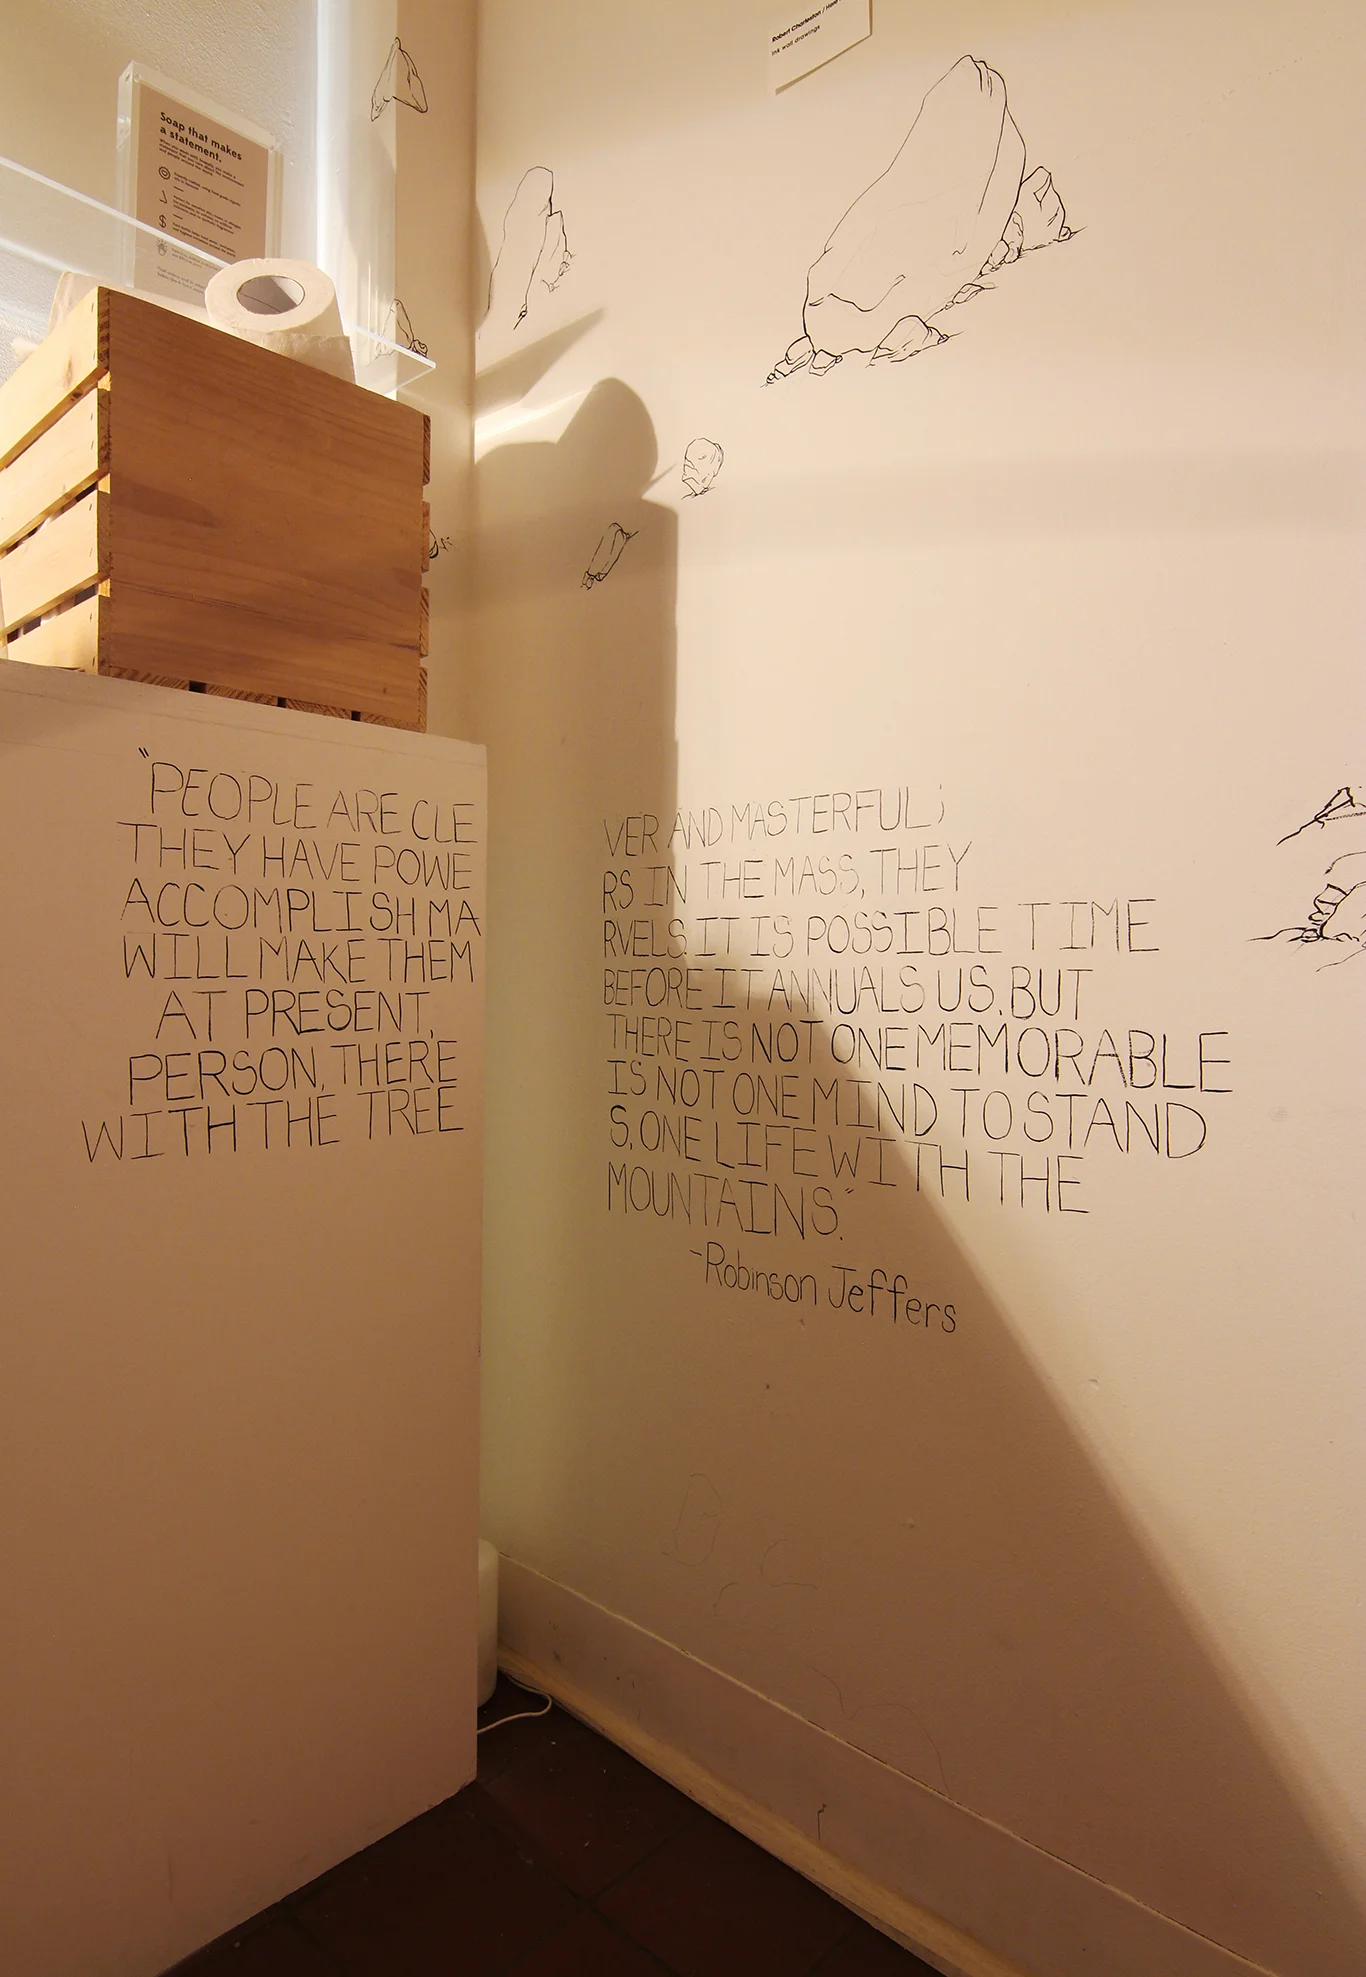 Soap that makes
a statement.
$
Robert Charleston /
Ink wall drawings
"PEOPLE ARE CLEVER AND MASTERFUL;
THEY HAVE POWERS IN THE MASS, THEY
ACCOMPLISH MARVELS. IT IS POSSIBLE TIME
WILL MAKE THEM BEFORE IT ANNUALS US. BUT
AT PRESENT, THERE IS NOT ONE MEMORABLE
PERSON, THERE IS NOT ONE MIND TO STAND
WITH THE TREES, ONE LIFE WITH THE
MOUNTAINS."
-Robinson Jeffers